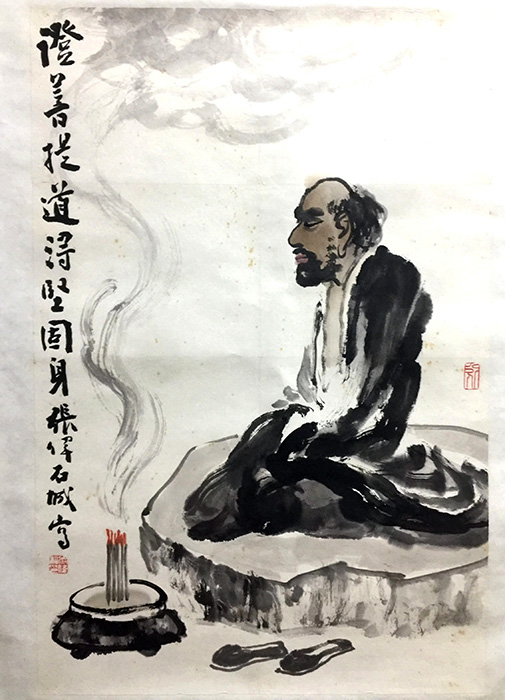 證菩提道得堅固身 張偉石城寫